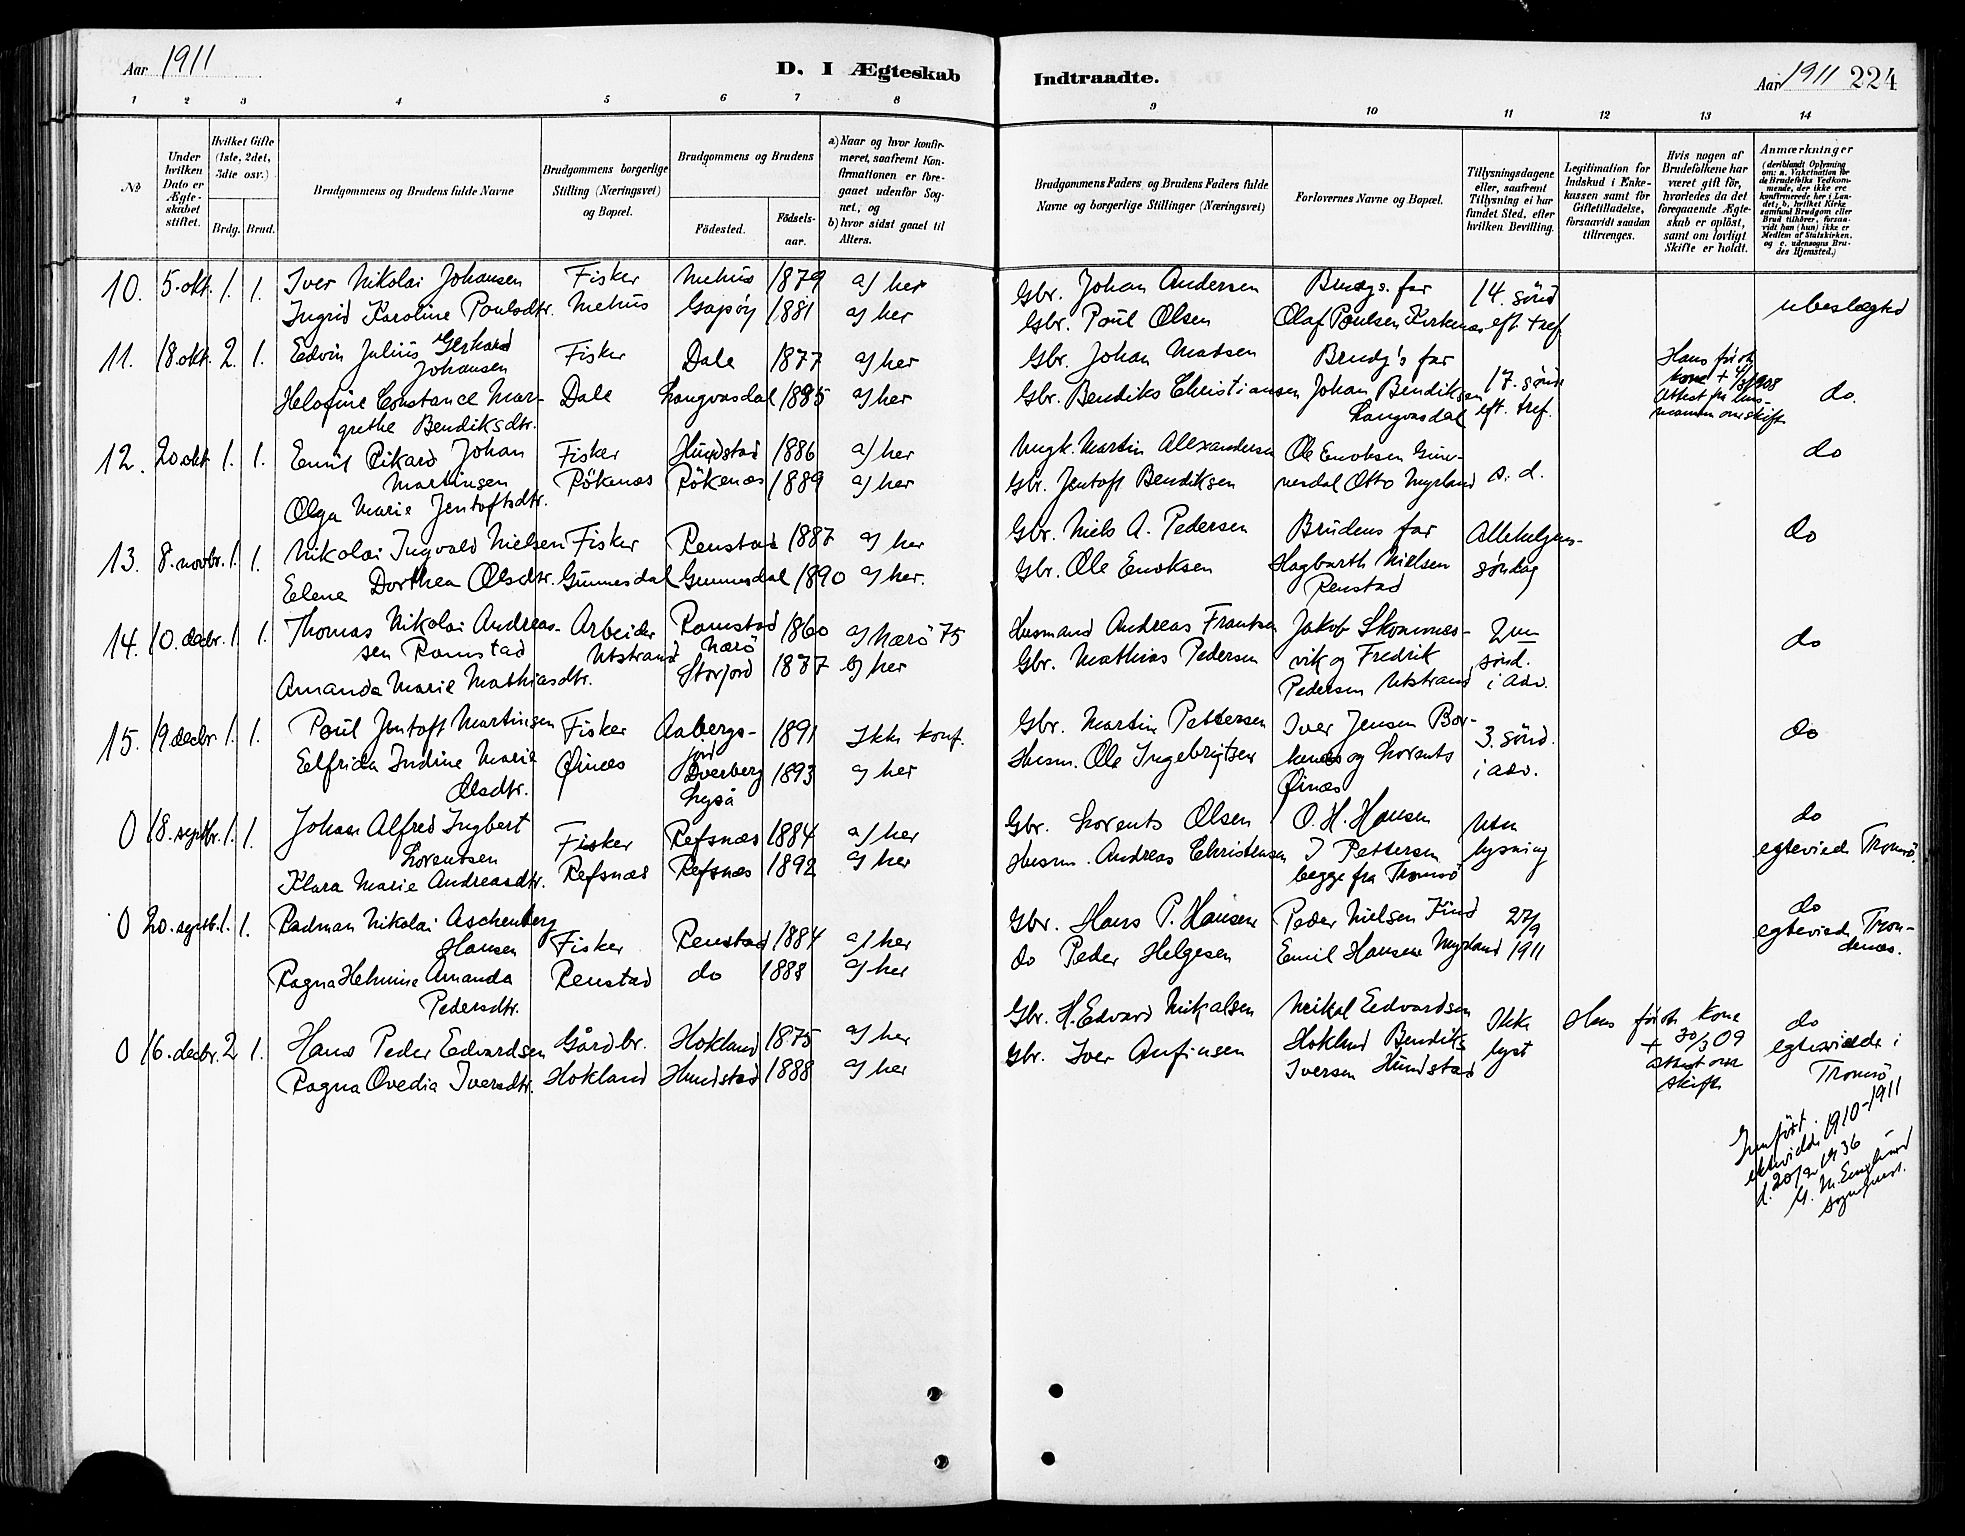 Aar 1911
D. I Ægteskab
Indtraadte.
Aar 1911 224
1 2 3 4 5 6 7 8 9 10 11 12 13 14
No
Under hvilken Dato er Ægteskabet stiftet.
Hvilket Gifte (1ste, 2det, 3die osv.)
Brdg. Brud.
Brudgommens og Brudens fulde Navne
Brudgommens borgerlige Stilling (Næringsvei) og Bopæl.
Brudgommens og Brudens
Fødested.
Fødsels-aar.
a) Naar og hvor konfirmeret, saafremt Konfirmationen er foregaaet udenfor Sognet, og
b) hvor sidst gaaet til Alters.
Brudgommens Faders og Brudens Faders fulde Navne og borgerlige Stillinger (Næringsvei)
Forlovernes Navne og Bopæl.
Tillysningsdagene eller, saafremt Tillysning ei har fundet Sted, efter hvilken Bevilling.
Legitimation for Indskud i Enkekassen samt for Giftetilladelse, forsaavidt saadan tiltrænges.
Hvis nogen af Brudefolkene har været gift før, hvorledes da det foregaaende Ægteskab er opløst, samt om lovligt Skifte er holdt.
Anmærkninger
(deriblandt Oplysning om: a. Vakcination for de Brudefolks Vedkommende, der ikke ere konfirmerede her i Landet; b. hvilket Kirkesamfund Brudgom eller Brud tilhører, forsaavidt han (hun) ikke er Medlem af Statskirken, og c. udensogns Brudes Hjemsted.)
10. 5. okt. 1. 1. Iver Nikolai Johansen Fisker Mehus 1879 a) her Gbr. Johan Andersen Brudgs. far 14. sønd
Ingrid Karoline Poulsdtr. Mehus Gapøy 1881 a) her Gbr. Poul Olsen Olaf Poulsen Kirkenæs eft tref. ubeslægted
11. 18. okt. 2. 1. Edvin Julius Gerhard Johansen Fisker Dale 1877 a) her Gbr. Johan Madsen Brudg's far 17. sønd eft. tref. Hans første kone + 4/3 1908 Attest fra lensmanden om skifte do.
Helofine Constance Margrethe Bendiksdtr. Dale Langvasdal 1885 a) her Gbr. Bendiks Christiansen Johan Bendiksen Langvasdal
12. 20 okt 1. 1. Emil Rikard Johan Martinsen Fisker Hundstad 1886 a) her Ungk. Martin Alexandersen Ole Enoksen Gunnesdal s. d. do
Olga Marie Jentoftsdtr. Rökenæs Rökenæs 1889 a) her Gbr. Jentoft Bendiksen Otto Myrland
13. 8. novbr. 1. 1. Nikolai Ingvald Nielsen Fisker Renstad 1887 a) her Gbr. Niels A. Pedersen Brudens far Allehelgens- do
Elene Dorthea Olsdtr. Gunnesdal Gunnesdal 1890 a) her. Gbr. Ole Enoksen Hagbarth Nielsen Renstad søndag
14. 10. decbr. 1. 1. Thomas Nikolai Andreassen Ramstad Arbeider Utstrand Ramstad Nærö 1860 a) Nærö 75 Husmand Andreas Frantsen Jakob Skommesvik og Fredrik Pedersen Utstrand 2en sønd. i adv. do
Amanda Marie Mathiasdtr. Storjord 1887 a) her Gbr. Mathias Pedersen
15. 19 decbr. 1. 1. Poul Jentoft Martinsen Fisker Aabergsjord 1891 Ikke konf. Gbr. Martin Pettersen Iver Jensen Borkenæs og Lorents Øinæs 3. sønd. i adv. do
Elfrida Indine Marie Olsdtr. Øinæs Dverberg Lyså 1893 a) her Husm. Ole Ingebrigtsen
0 18. septbr. 1. 1. Johan Alfred Ingbert Lorentsen Fisker Refsnæs 1884 a) her Gbr. Lorents Olsen O. H. Hansen Uten lysning do
Klara Marie Andreasdtr. Refsnæs Refsnæs 1892 a) her Husm. Andreas Christensen I Pettersen begge fra Tromsö egteviede Tromsö.
0 20. septb. 1. 1. Radman Nikolai Aschenberg Hansen Fisker Renstad 1884 a) her Gbr. Hans P. Hansen Peder Nielsen Find 27/9 1911 do
Ragna Helmine Amanda Pedersdtr. Renstad do 1888 a) her do Peder Helgesen Emil Hansen Myrland egteviede Trondenæs.
0 16. decbr. 2 1. Hans Peder Edvardsen Gårdbr. Hokland 1875 a) her Gbr. H. Edvard Mikalsen Meikal Edvardsen Hokland Ikke lyst Hans første kone + 30/3 09 Attest om skifte do
Ragna Ovedia Iversdtr. Hokland Hundstad 1888 a) her Gbr. Iver Anfinsen Bendiks Iversen Hundstad egteviede i Tromsö
1910-1911
1936
sogneprest.